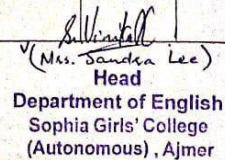 (Mrs. Sandra Lee)
Head
Department of English
Sophia Girls' College
(Autonomous), Ajmer